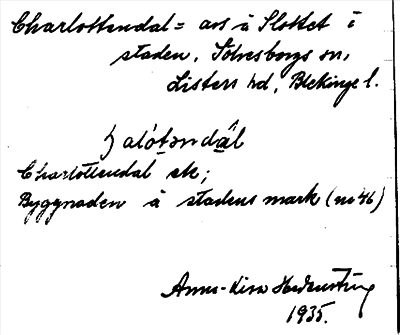 Charlottendal = avs å Slottet i
staden, Sölvesborgs sn,
Listers hd, Blekinge l.
Charlottendal ek;
Byggnaden å stadens mark (nr 46)
Anna-Lisa
1935.